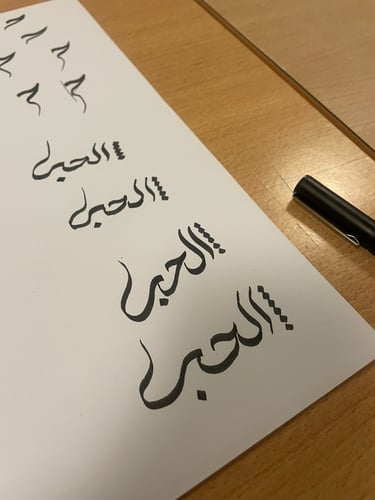 الحبر
الحبر
الحبر
الحبر